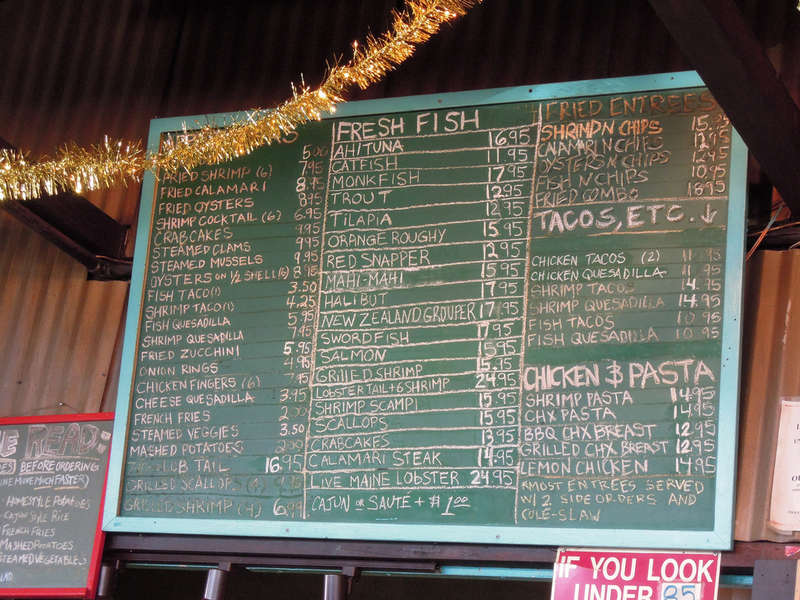 5.00
FRIED SHRIMP (6) 7.95
FRIED CALAMARI 8.95
FRIED OYSTERS 8.95
SHRIMP COCKTAIL (6) 6.95
CRABCAKES 9.95
STEAMED CLAMS 9.95
STEAMED MUSSELS 9.95
OYSTERS ON 1/2 SHELL (6) 8.95
FISH TACO (1) 3.50
SHRIMP TACO (1) 4.25
FISH QUESADILLA 5.95
SHRIMP QUESADILLA 7.95
FRIED ZUCCHINI 5.95
ONION RINGS 4.95
CHICKEN FINGERS (6) 7.95
CHEESE QUESADILLA 3.95
FRENCH FRIES 2.00
STEAMED VEGGIES 3.50
MASHED POTATOES 2.00
TAIL 16.95
GRILLED SCALLOPS
GRILLED SHRIMP (4) 6.95
FRESH FISH
AHI TUNA 16.95
CATFISH 11.95
MONKFISH 17.95
TROUT 12.95
TILAPIA 12.95
ORANGE ROUGHY 15.95
RED SNAPPER 12.95
MAHI-MAHI 15.95
HALIBUT 17.95
NEW ZEALAND GROUPER 17.95
SWORDFISH 17.95
SALMON 15.95
GRILLED SHRIMP 15.95
LOBSTER TAIL + 6 SHRIMP 24.95
SHRIMP SCAMPI 15.95
SCALLOPS 15.95
CRABCAKES 13.95
CALAMARI STEAK 14.95
LIVE MAINE LOBSTER 24.95
CAJUN OR SAUTÉ + $1.00
FRIED ENTREES
SHRIMP N CHIPS 15.95
CALAMARI N CHIPS 12.95
OYSTERS N CHIPS 12.95
FISH N CHIPS 10.95
FRIED COMBO 18.95
TACOS, ETC. ↓
CHICKEN TACOS (2) 11.95
CHICKEN QUESADILLA 11.95
SHRIMP TACOS 14.95
SHRIMP QUESADILLA 14.95
FISH TACOS 10.95
FISH QUESADILLA 10.95
CHICKEN & PASTA
SHRIMP PASTA 14.95
CHX PASTA 14.95
BBQ CHX BREAST 12.95
GRILLED CHX BREAST 12.95
LEMON CHICKEN 14.95
MOST ENTREES SERVED
W/ 2 SIDE ORDERS AND
COLE-SLAW
READ
BEFORE ORDERING
MOVE MUCH FASTER)
HOMESTYLE POTATOES
CAJUN STYLE RICE
FRENCH FRIES
MASHED POTATOES
STEAMED VEGETABLES
IF YOU LOOK
UNDER 35